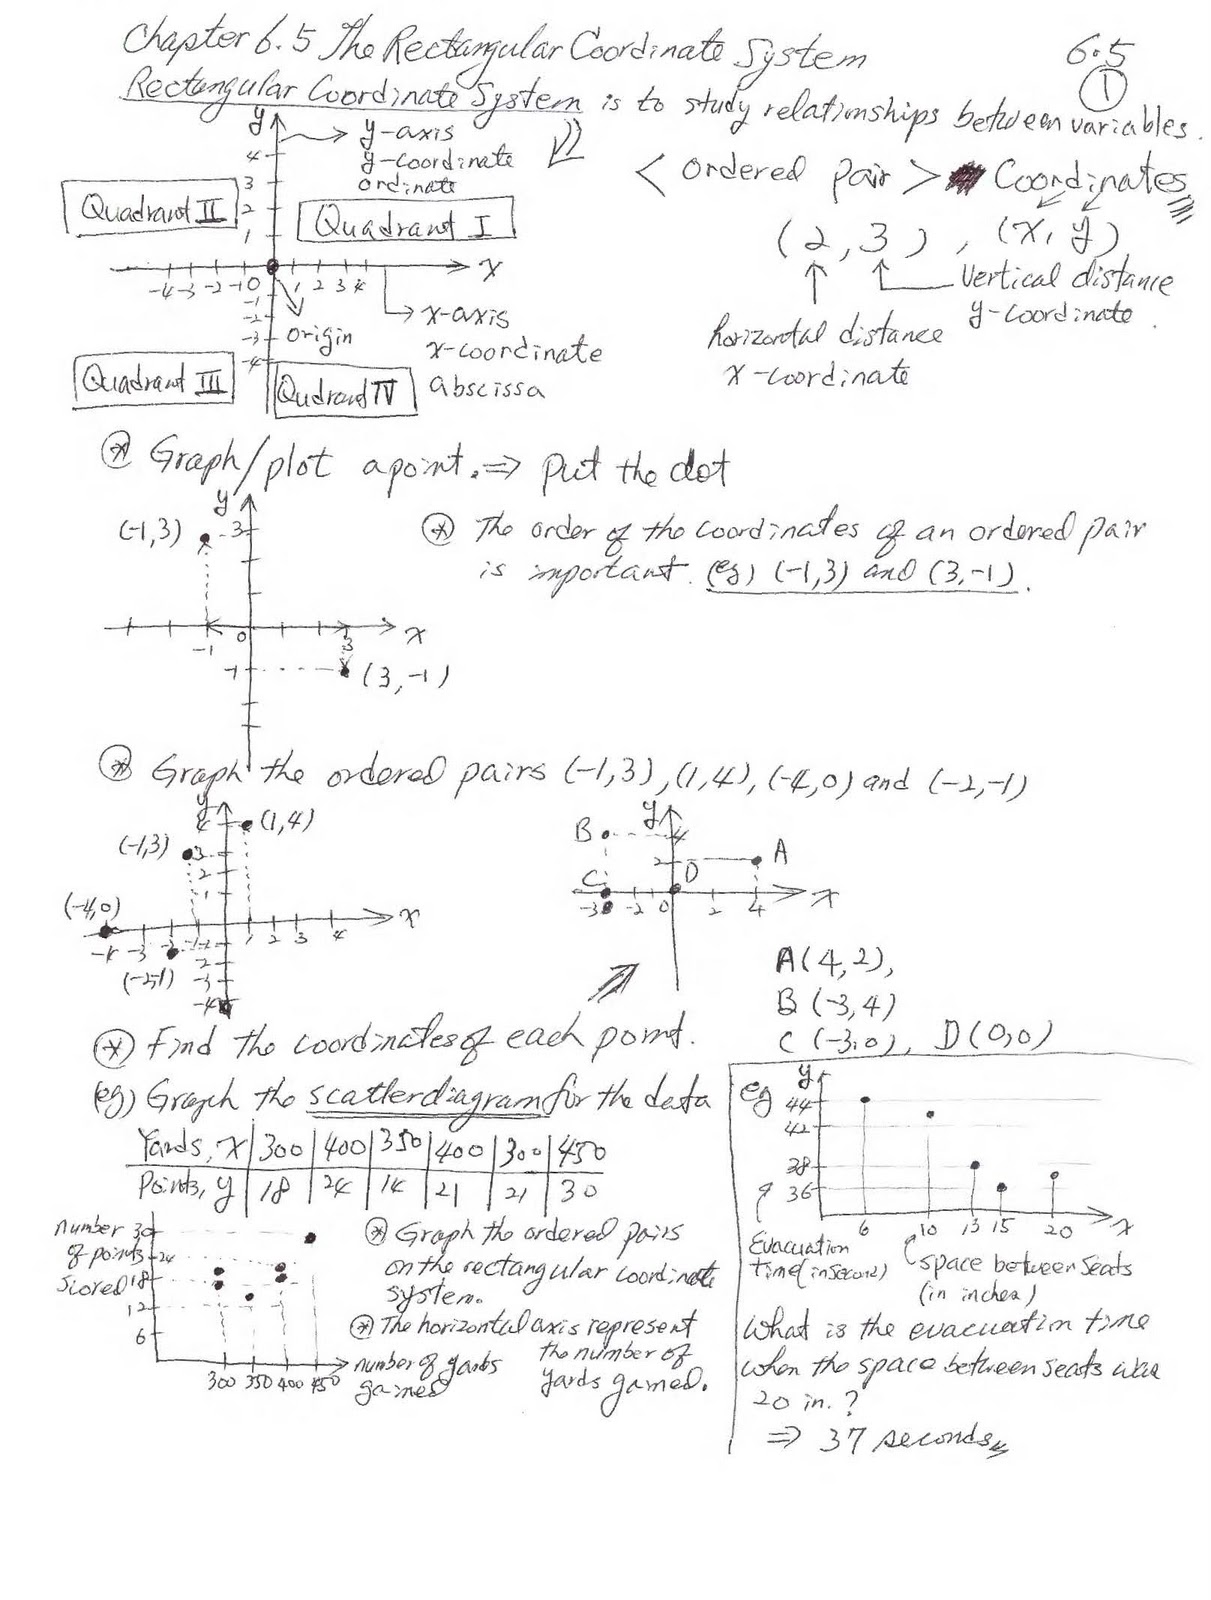 Chapter 6.5 The Rectangular Coordinate System
6.5
1
Rectangular Coordinate System is to study relationships between variables.
y
y-axis
y-coordinate
ordinate
< ordered pair > Coordinates
4
3
2
1
Quadrant II
Quadrant I
(2, 3), (x, y)
x
-4 -3 -2 -1 0 1 2 3 4
-1
-2
-3
-4
origin
x-axis
x-coordinate
abscissa
Vertical distance
y-coordinate.
horizontal distance
x-coordinate
Quadrant III
Qudrant IV
* Graph/plot a point. ⇒ Put the dot
y
(-1,3)
3
* The order of the coordinates of an ordered pair
is important. (eg) (-1,3) and (3,-1).
-1 0 3 x
-1
(3,-1)
* Graph the ordered pairs (-1,3), (1,4), (-4,0) and (-2,-1)
y
4
(1,4)
(-1,3)
3
2
1
(-4,0)
x
-4 -3 -2 -1 1 2 3 4
-2
-3
-4
(-2,-1)
B
y
4
2
A
C
D
-3 -2 0 2 4 x
A(4,2),
B(-3,4)
C(-3,0), D(0,0)
* Find the coordinates of each point.
(eg) Graph the scatterdiagram for the data
Yards, x 300 400 350 400 300 450
Points, y 18 24 14 21 21 30
number of points scored
30
24
18
12
6
300 350 400 450
number of yards gained
* Graph the ordered pairs
on the rectangular coordinate
system.
* The horizontal axis represent
the number of
yards gained.
eg
y
44
42
38
36
6 10 13 15 20 x
Evacuation
time (in second)
space between seats
(in inches)
What is the evacuation time
when the space between seats was
20 in.?
⇒ 37 seconds